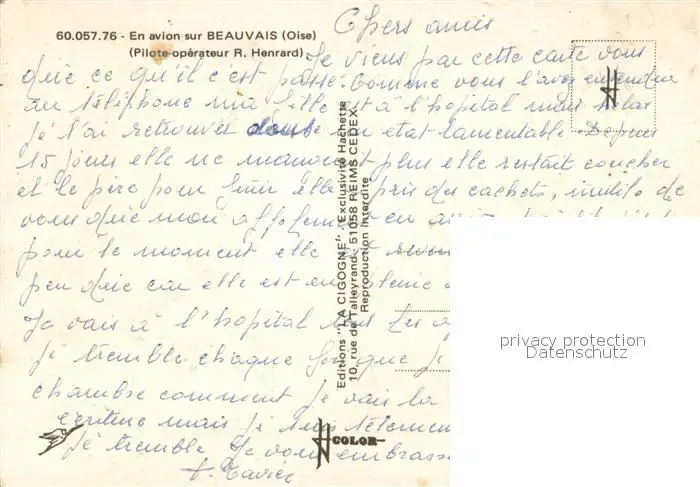 60.057.76 - En avion sur BEAUVAIS (Oise)
(Pilote-opérateur R. Henrard)
Chers amis
Je viens par cette carte vous
dire ce qu'il c'est passé. Comme vous l'avez entendu
au téléphone ma fille est à l'hopital mais helas
je l'ai retrouvée dans un etat lamentable. Depuis
15 jours elle ne mangeait plus elle restait coucher
et le pire pour finir elle a pris des cachets, inutile de
vous dire mon affolement en
pour le moment elle est
peu dire car elle est en
Je vais à l'hopital tous les
je tremble chaque fois que je
chambre comment je vais la
ecriture mais je suis tellement
je tremble Je vous embrasse
Editions "LA CIGOGNE" - Exclusivité Hachette
10, rue de Talleyrand - 51058 REIMS CEDEX
Reproduction interdite
COLOR
privacy protection
Datenschutz